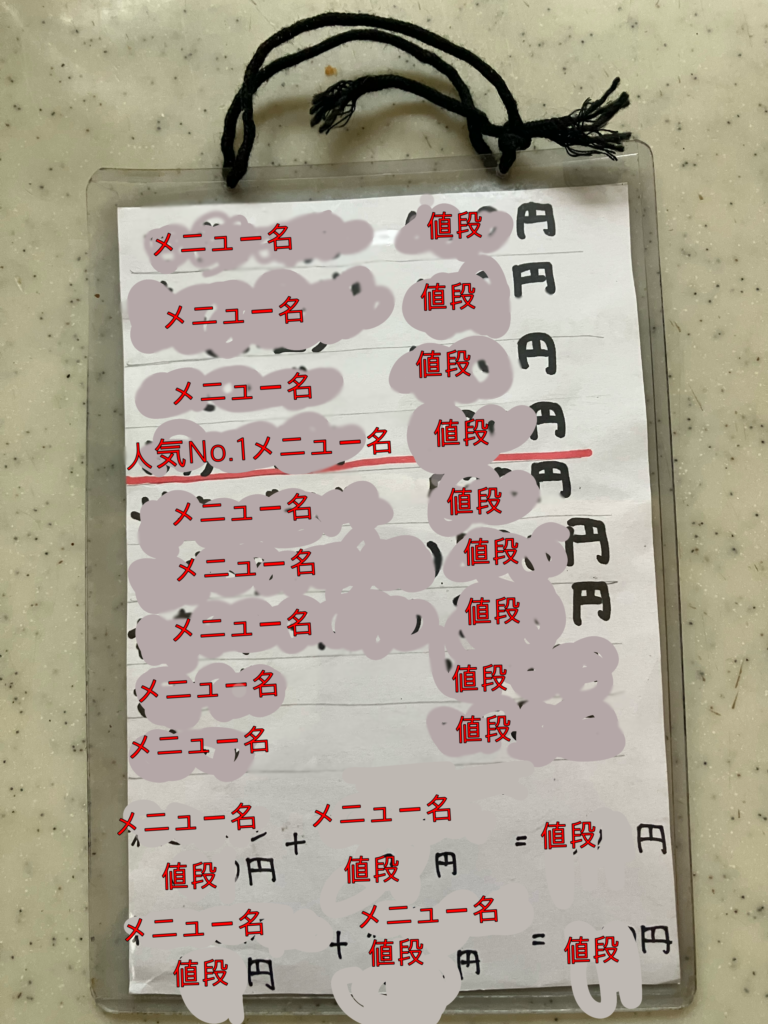 メニュー名 値段 円
メニュー名 値段 円
メニュー名 値段 円
人気No.1メニュー名 値段 円
メニュー名 値段 円
メニュー名 値段 円
メニュー名 値段 円
メニュー名 値段
メニュー名 値段
メニュー名 + メニュー名 = 値段 円
値段 円 値段 円
メニュー名 + メニュー名 = 値段 円
値段 円 値段 円